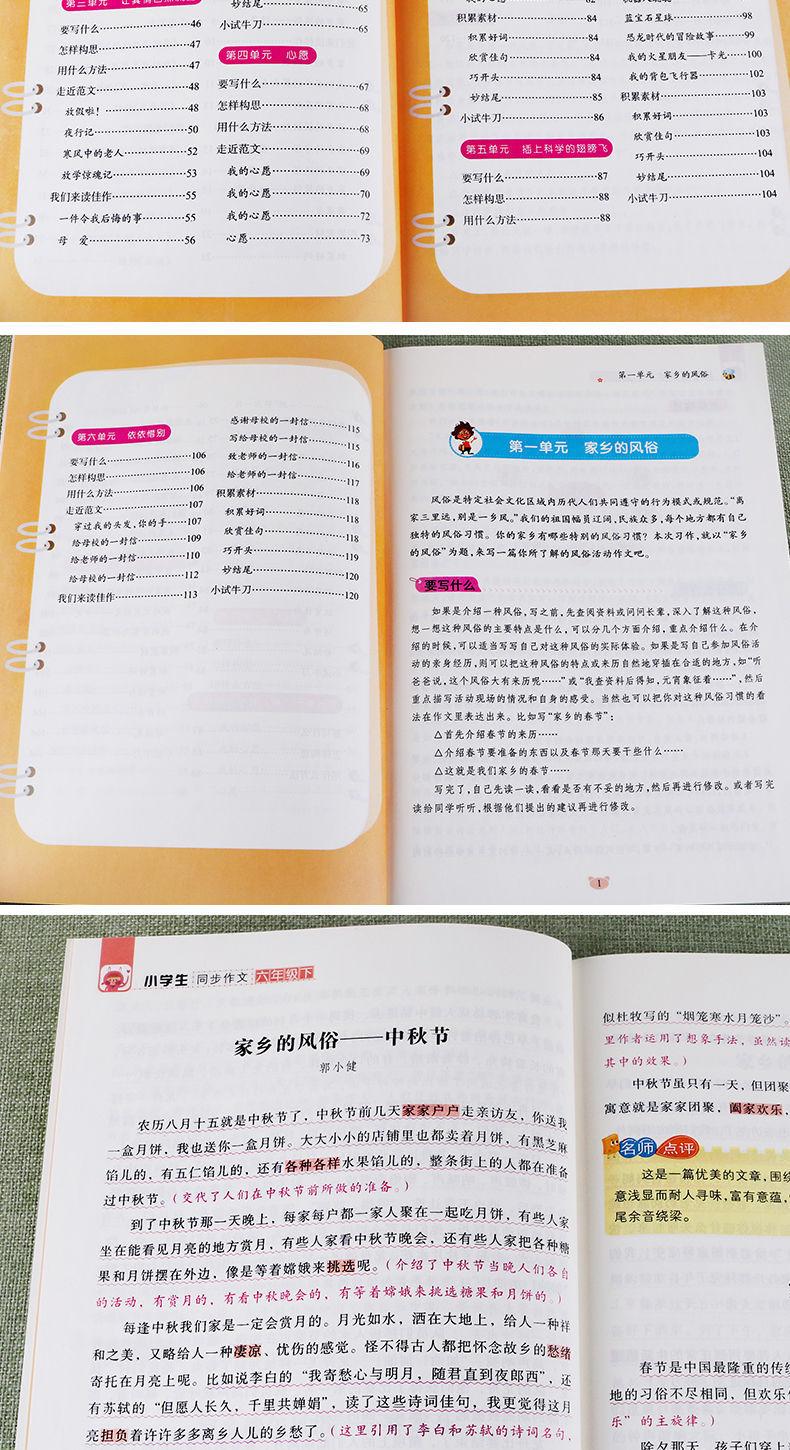 要写什么…………46
怎样构思…………47
用什么方法…………47
走近范文…………48
放假啦！…………48
夜行记…………50
寒风中的老人…………52
放学惊魂记…………53
我们来读佳作…………55
一件令我后悔的事…………55
母 爱…………56
妙结尾…………65
小试牛刀…………65
第四单元 心愿
要写什么…………67
怎样构思…………68
用什么方法…………68
走近范文…………69
我的心愿…………69
我的心愿…………70
我的心愿…………72
心愿…………73
积累素材…………84
积累好词…………84
欣赏佳句…………84
巧开头…………84
妙结尾…………85
小试牛刀…………86
第五单元 插上科学的翅膀飞
要写什么…………87
怎样构思…………88
用什么方法…………88
蓝宝石星球…………98
恐龙时代的冒险故事…………99
我的火星朋友——卡光……100
我的背包飞行器…………102
积累素材…………103
积累好词…………103
欣赏佳句…………103
巧开头…………104
妙结尾…………104
小试牛刀…………104
第六单元 依依惜别
要写什么…………106
怎样构思…………106
用什么方法…………106
走近范文…………107
穿过我的头发，你的手……107
给母校的一封信…………109
给老师的一封信…………110
给母校的一封信…………112
我们来读佳作…………113
感谢母校的一封信…………115
写给母校的一封信…………115
致老师的一封信…………116
给老师的一封信…………117
积累素材…………118
积累好词…………118
欣赏佳句…………118
巧开头…………119
妙结尾…………120
小试牛刀…………120
第一单元 家乡的风俗
第一单元 家乡的风俗
风俗是特定社会文化区域内历代人们共同遵守的行为模式或规范。“离
家三里远，别是一乡风。”我们的祖国幅员辽阔，民族众多，每个地方都有自己
独特的风俗习惯。你的家乡有哪些特别的风俗习惯？本次习作，就以“家乡
的风俗”为题，来写一篇你所了解的风俗活动作文吧。
要写什么
如果是介绍一种风俗，写之前，先查阅资料或问问长辈，深入了解这种风俗，
想一想这种风俗的主要特点是什么，可以分几个方面介绍，重点介绍什么。在介
绍的时候，可以适当写写自己对这种风俗的实际体验。如果是写自己参加风俗活
动的亲身经历，则可以把这种风俗的特点或来历自然地穿插在合适的地方，如“听
爸爸说，这个风俗大有来历呢……”或“我查资料后得知，元宵象征着……”，然后
重点描写活动现场的情况和自身的感受。当然也可以把你对这种风俗习惯的看
法在作文里表达出来。比如写“家乡的春节”：
△首先介绍春节的来历……
△介绍春节要准备的东西以及春节那天要干些什么……
△这就是我们家乡的春节……
写完了，自己先读一读，看看是否有不妥的地方，然后再进行修改。或者写完
读给同学听听，根据他们提出的建议再进行修改。
1
小学生 同步作文 六年级下
家乡的风俗——中秋节
郭小健
农历八月十五就是中秋节了，中秋节前几天家家户户走亲访友，你送我
一盒月饼，我也送你一盒月饼。大大小小的店铺里也都卖着月饼，有黑芝麻
馅儿的，有五仁馅儿的，还有各种各样水果馅儿的，整条街上的人都在准备
过中秋节。（交代了人们在中秋节前所做的准备。）
到了中秋节那一天晚上，每家每户都一家人聚在一起吃月饼，有些人家
坐在能看见月亮的地方赏月，有些人家看中秋节晚会，还有些人家把各种糖
果和月饼摆在外边，像是等着嫦娥来挑选呢。（介绍了中秋节当晚人们各自
的活动，有赏月的，有看中秋晚会的，有等着嫦娥来挑选糖果和月饼的。）
每逢中秋我们家是一定会赏月的。月光如水，洒在大地上，给人一种祥
和之美，又略给人一种凄凉、忧伤的感觉。怪不得古人都把怀念故乡的愁绪
寄托在月亮上呢。比如说李白的“我寄愁心与明月，随君直到夜郎西”，还
有苏轼的“但愿人长久，千里共婵娟”，读了这些诗词佳句，我更觉得这月
亮担负着许许多多离乡人儿的乡愁了。（这里引用了李白和苏轼的诗词名句，
似杜牧写的“烟笼寒水月笼沙”。
里作者运用了想象手法，虽然读
其中的效果。）
中秋节虽只有一天，但团聚
寓意就是家家团聚，阖家欢乐，
名师点评
这是一篇优美的文章，围绕
意浅显而耐人寻味，富有意蕴，
尾余音绕梁。
春节是中国最隆重的传统
地的习俗不尽相同，但欢乐
乐”的主旋律。）
除夕那天，孩子们穿上